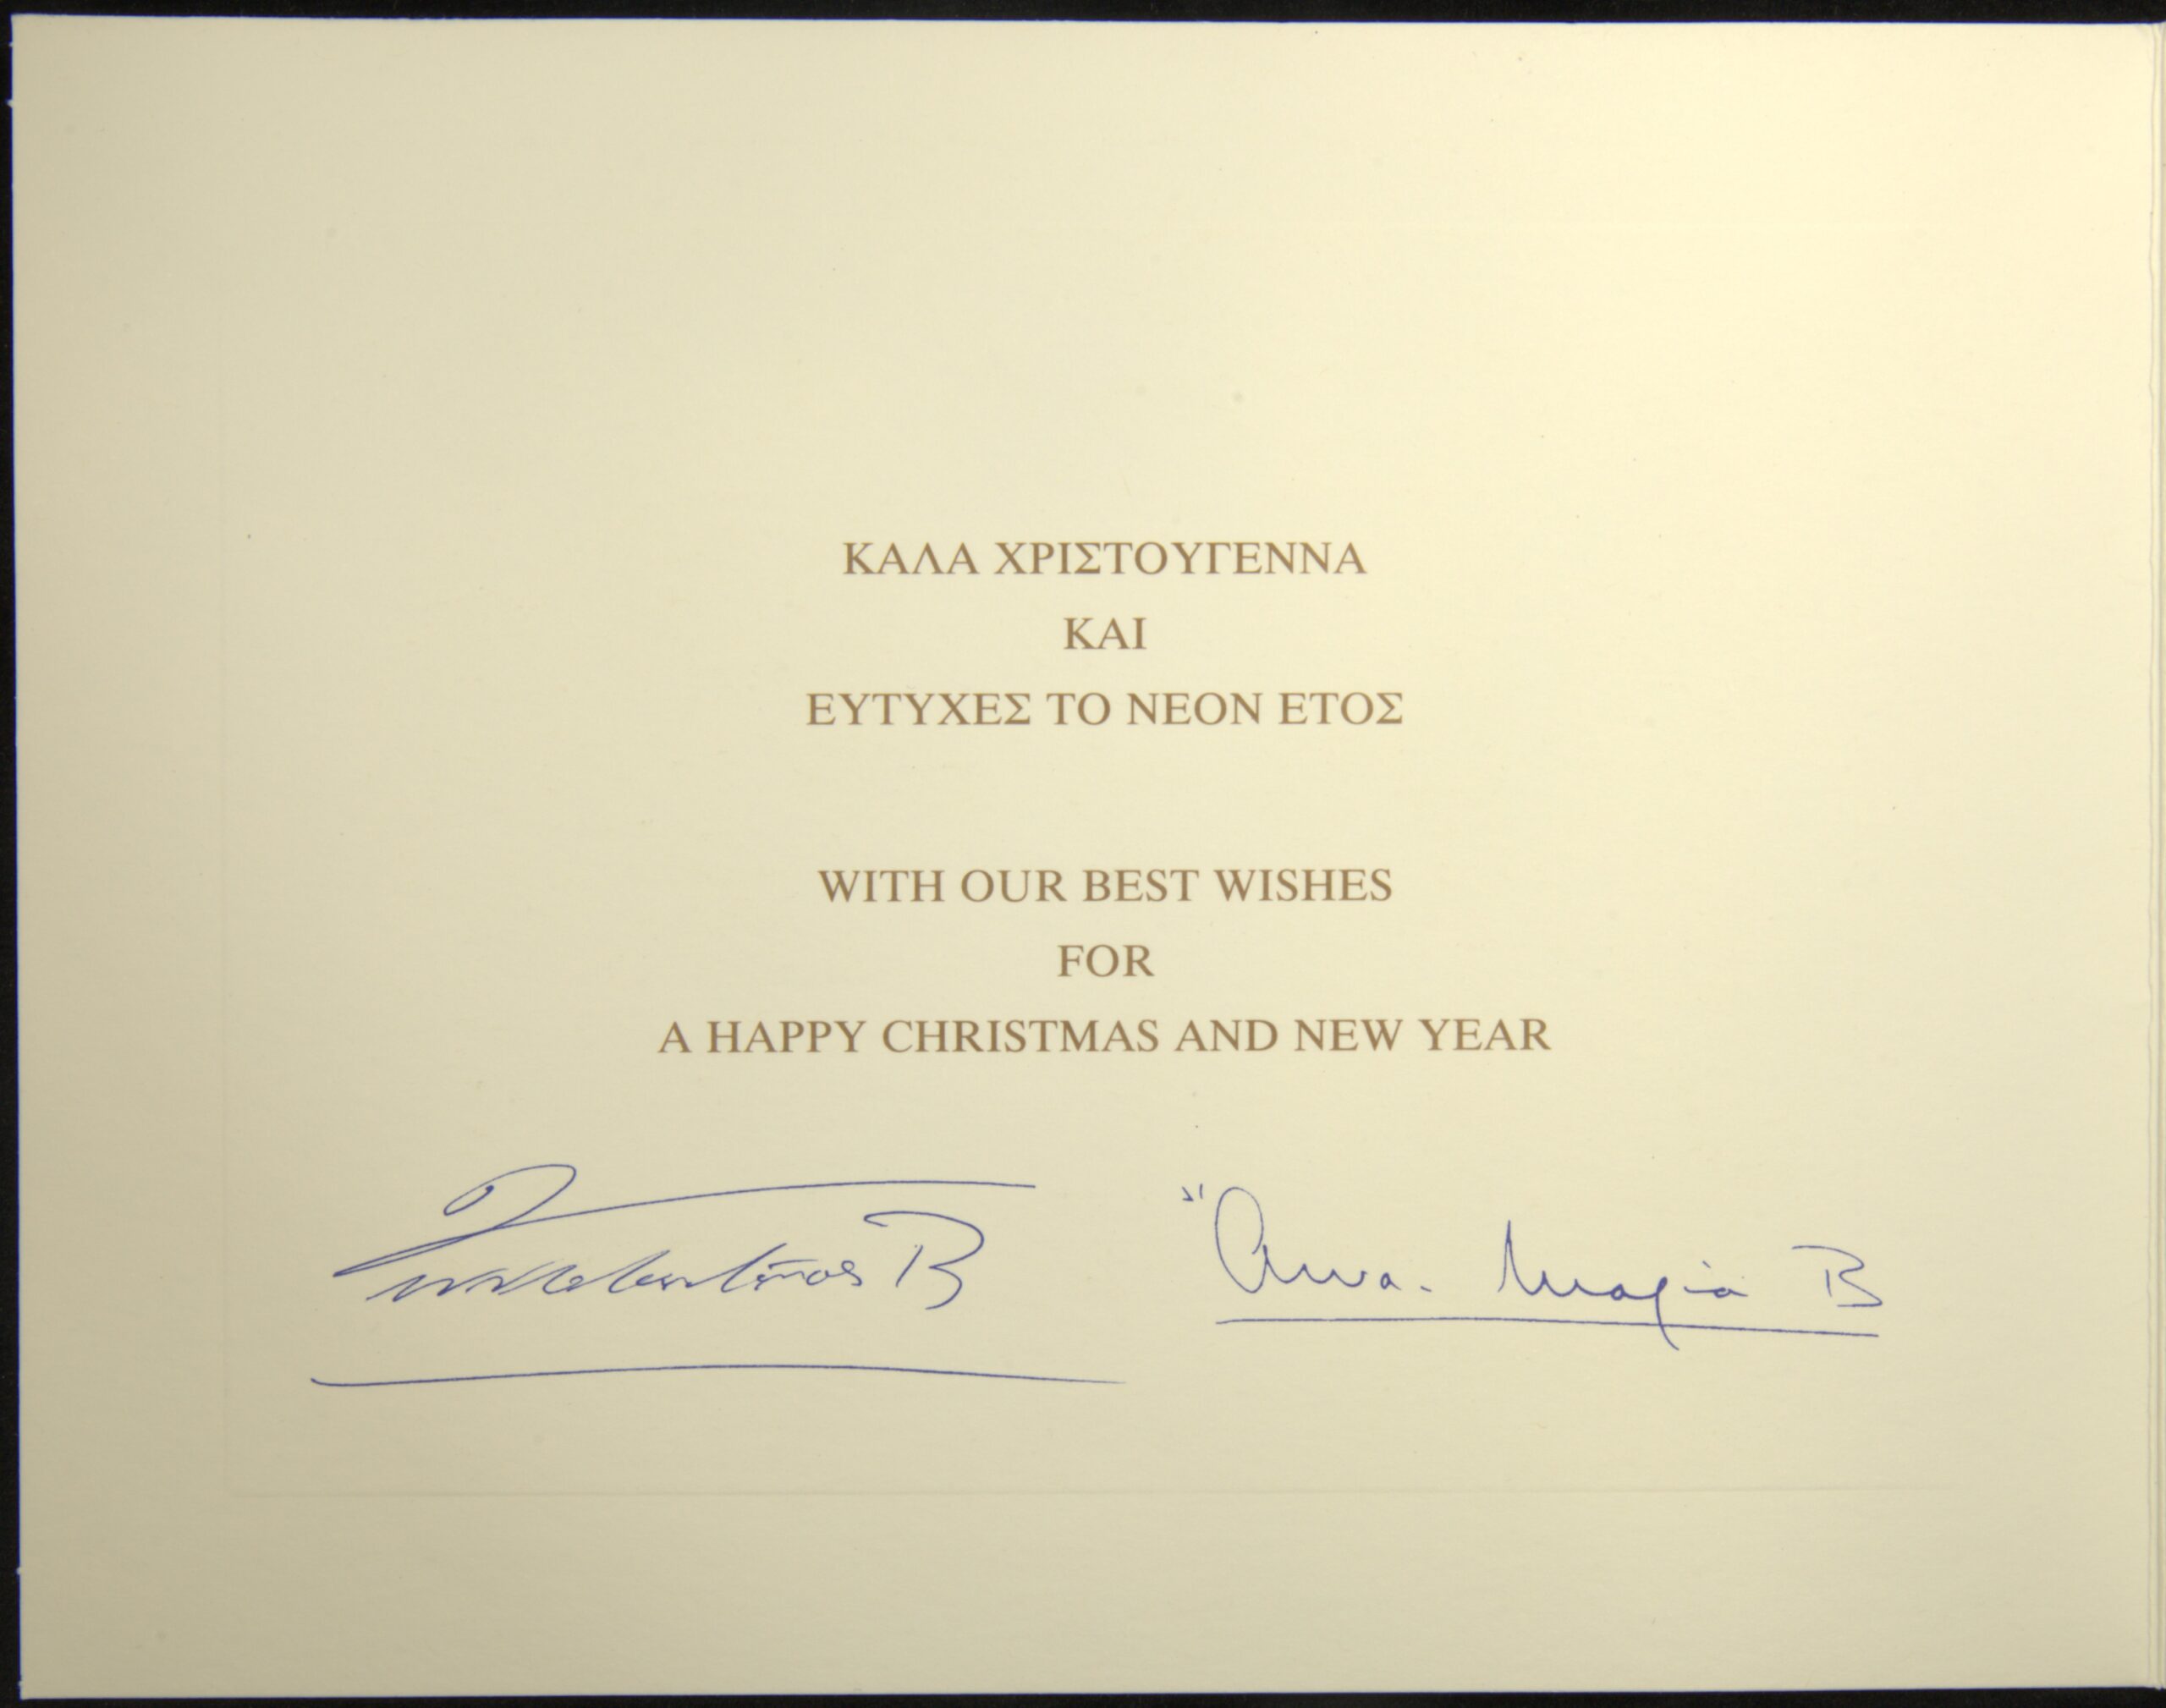 ΚΑΛΑ ΧΡΙΣΤΟΥΓΕΝΝΑ
ΚΑΙ
ΕΥΤΥΧΕΣ ΤΟ ΝΕΟΝ ΕΤΟΣ
WITH OUR BEST WISHES
FOR
A HAPPY CHRISTMAS AND NEW YEAR
Κωνσταντῖνος Β Ἄννα-Μαρία Β